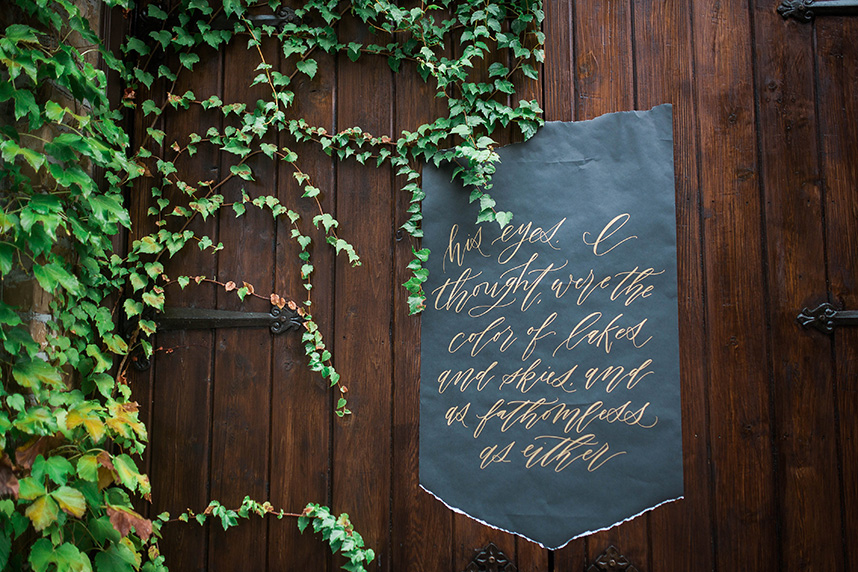 his eyes. I
thought, were the
color of lakes
and skies. and
as fathomless
as either